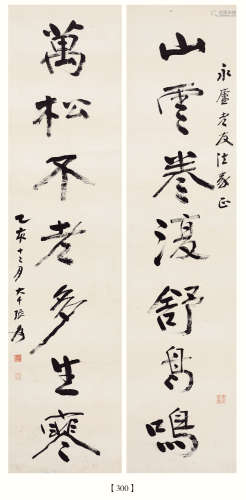 永廬老友法家正
山雲卷復舒鳥鳴
萬松不老多生寒
乙亥十二月大千張爰
【300】